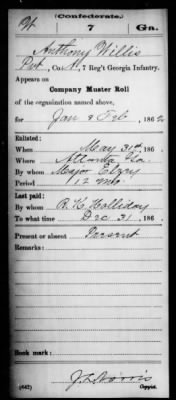 (Confederate.)
W 7 Ga.
Anthony Willis
Pvt, Co. 7 Reg't Georgia Infantry.
Appears on
Company Muster Roll
of the organization named above,
for Jan & Feb, 1862
Enlisted:
When May 31st, 186
Where Atlanta Ga.
By whom Major Elzry
Period 12 mo.
Last paid:
By whom R. K. Holliday
To what time Dec 31, 186
Present or absent Present
Remarks:
Book mark:
(642) J. L. Norris
Copyist.